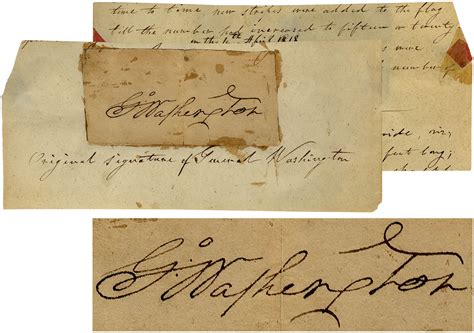 time to time new stripes were added to the flag
till the number had increased to fifteen or twenty
on the 4th April 1818
were
number of
G:Washington
Original signature of General Washington
ride, viz,
feet long;
G:Washington